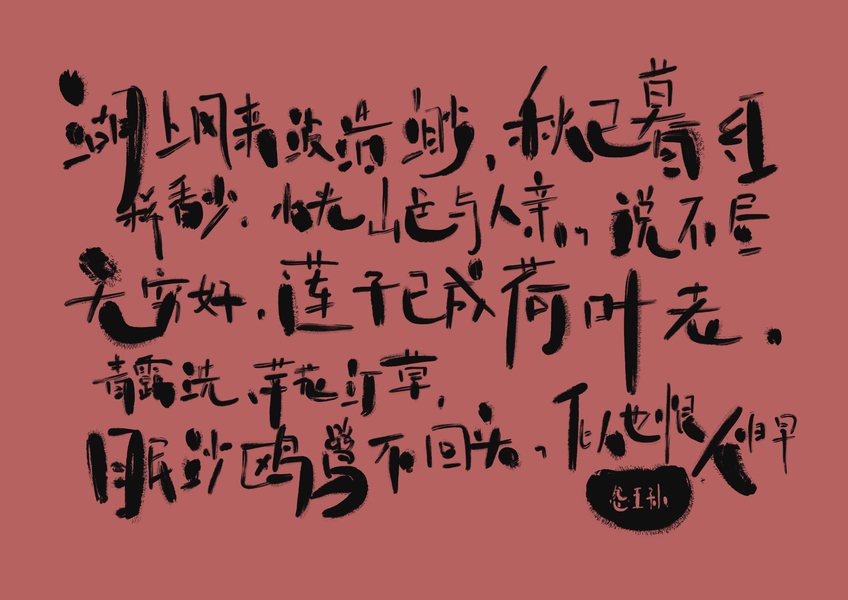 湖上风来波浩渺,秋已暮红
稀香少.水光山色与人亲,说不尽
无穷好.莲子已成荷叶老.
青露洗,苹花汀草,
眠沙鸥鹭不回头、似也恨人归早
怨王孙